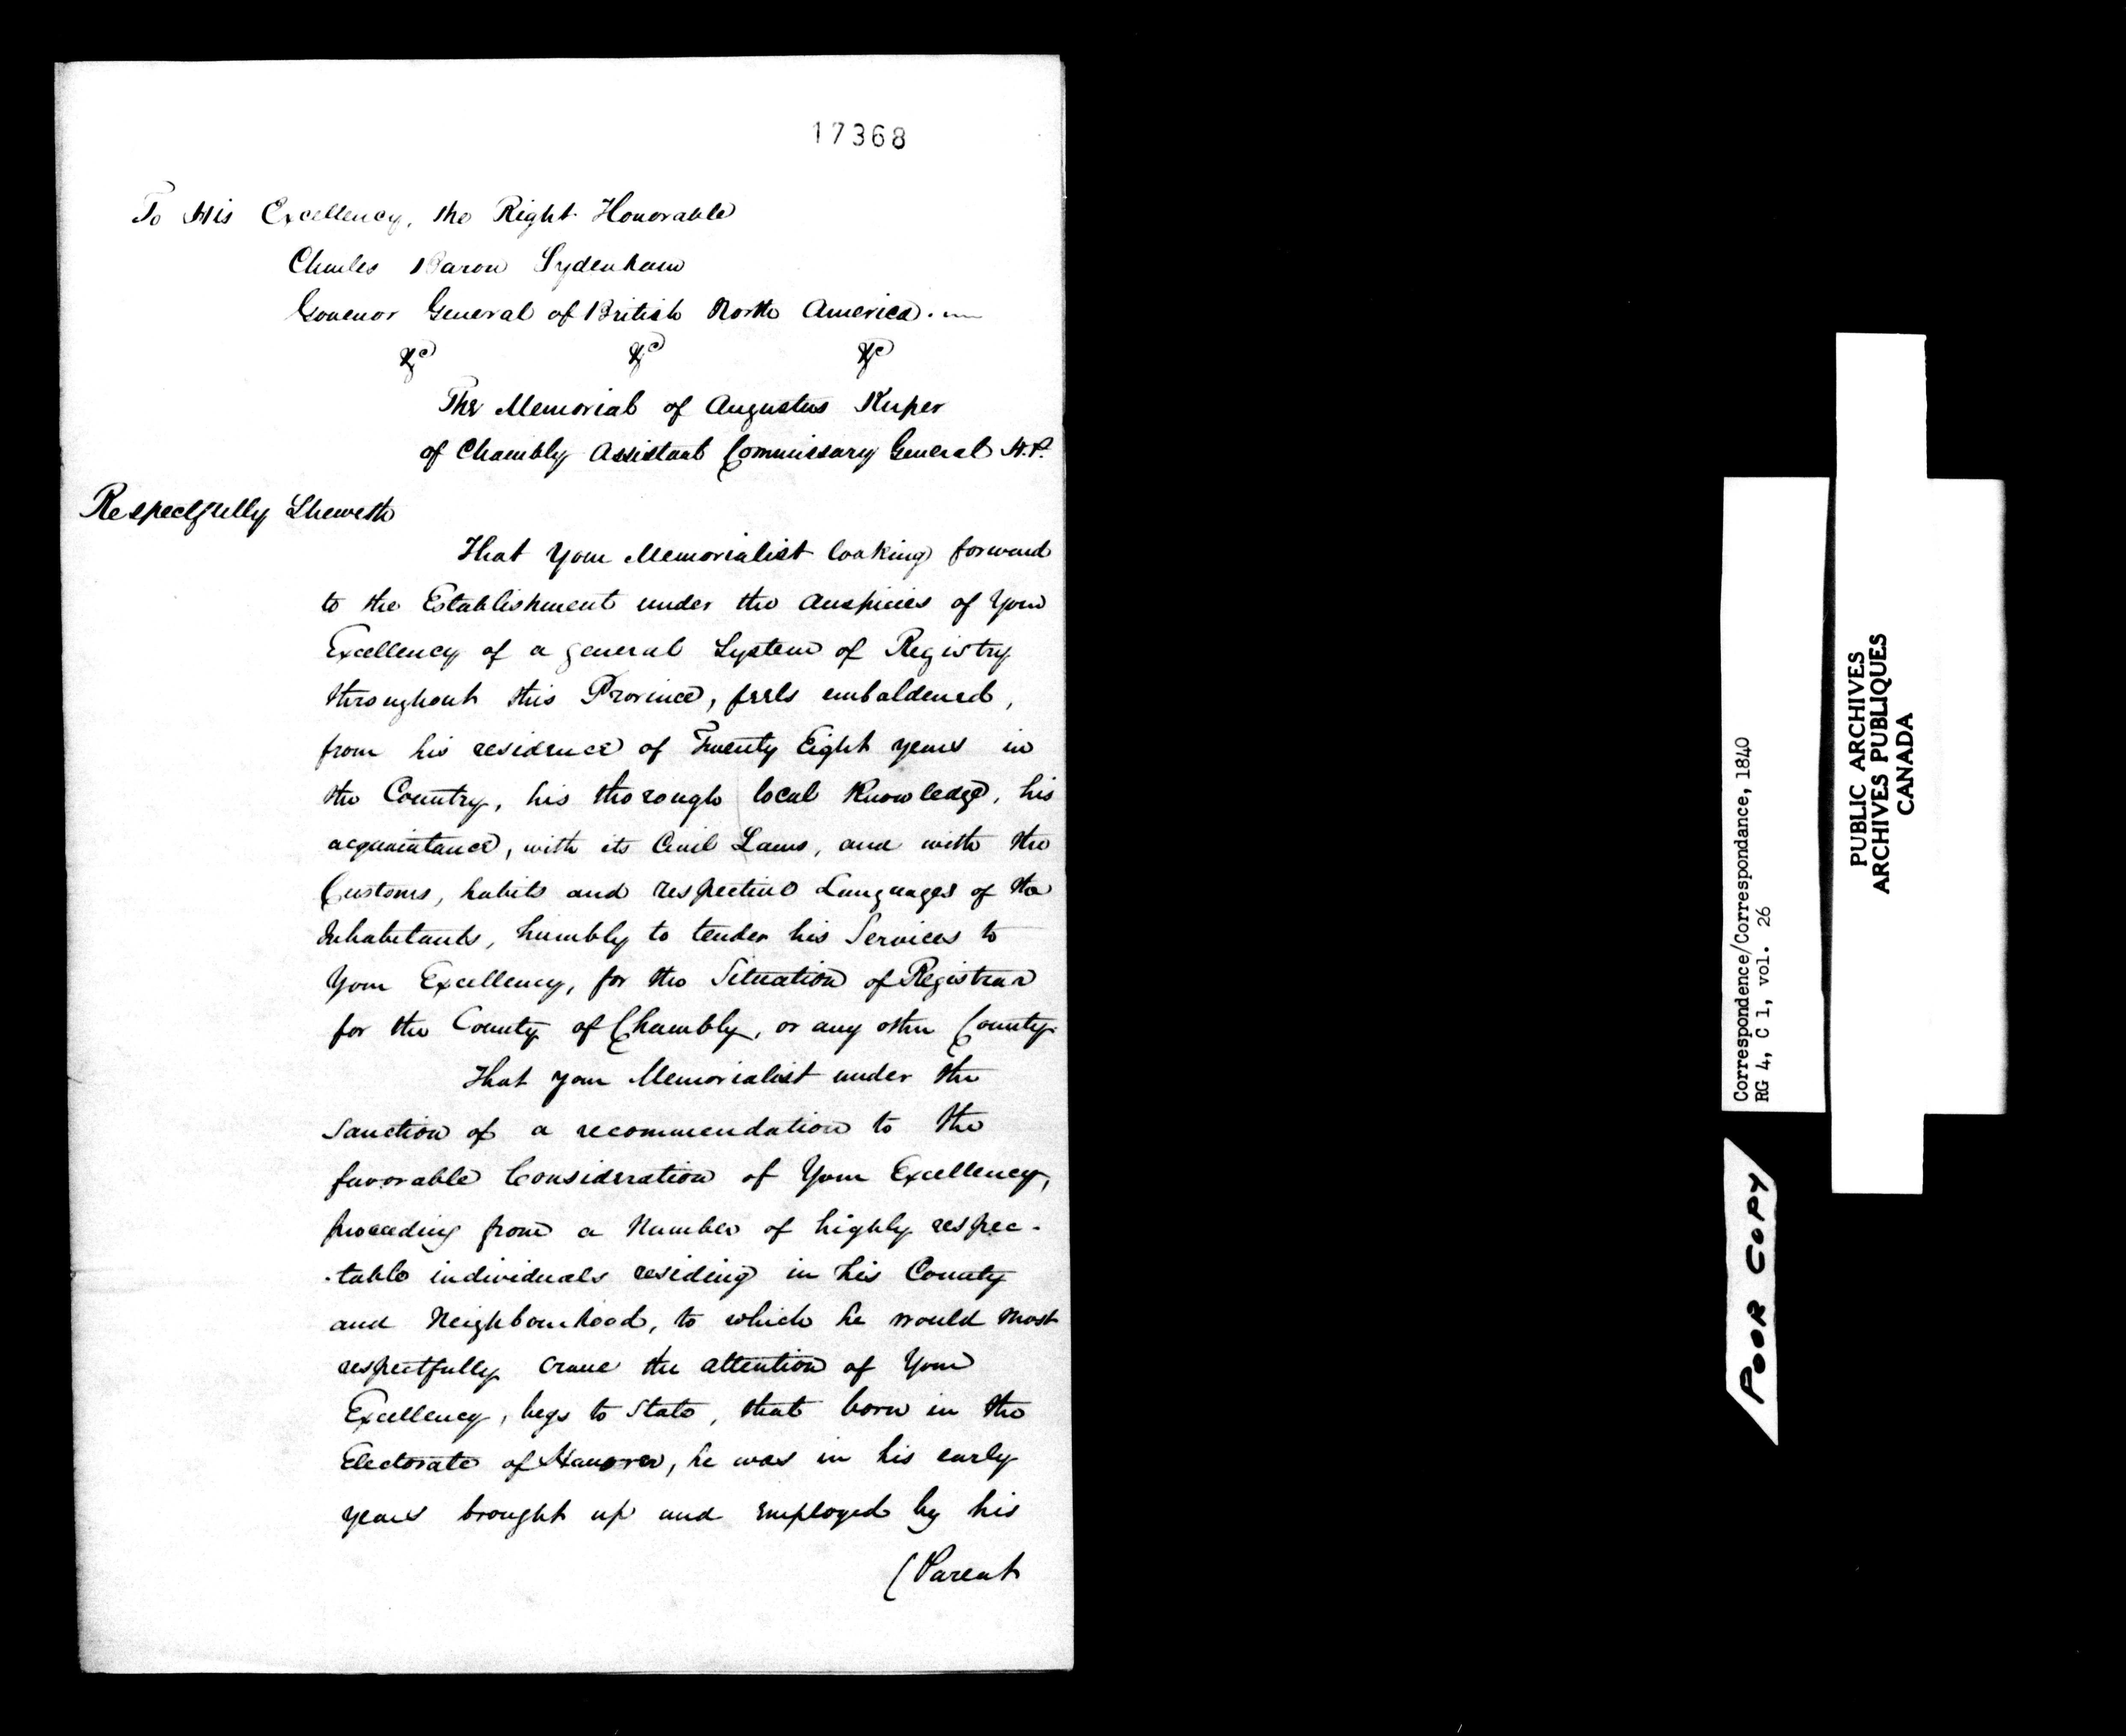 17368
To His Excellency, the Right Honorable
Charles Baron Sydenham
Govenor General of British North America.
&c &c &c
The Memorial of Augustus Kuper
of Chambly Assistant Commissary General H.P.
Respectfully Sheweth
That Your Memorialist looking forward
to the Establishment under the Auspicies of Your
Excellency of a general System of Registry
throughout this Province, feels emboldened,
from his residence of Twenty Eight years in
the Country, his thorough local Knowledge, his
acquaintance, with its Civil Laws, and with the
Customs, habits and respective Languages of the
Inhabitants, humbly to tender his Services to
Your Excellency, for the Situation of Registrar
for the County of Chambly, or any other County.
That your Memorialist under the
Sanction of a recommendation to the
favorable Consideration of Your Excellency,
proceeding from a Number of highly respec-
-table individuals residing in his County
and Neighbourhood, to which he would most
respectfully crave the attention of Your
Excellency, begs to State, that born in the
Electorate of Hanover, he was in his early
years brought up and employed by his
(Parent
Correspondence/Correspondance, 1840
RG 4, C 1, vol. 26
PUBLIC ARCHIVES
ARCHIVES PUBLIQUES
CANADA
POOR COPY